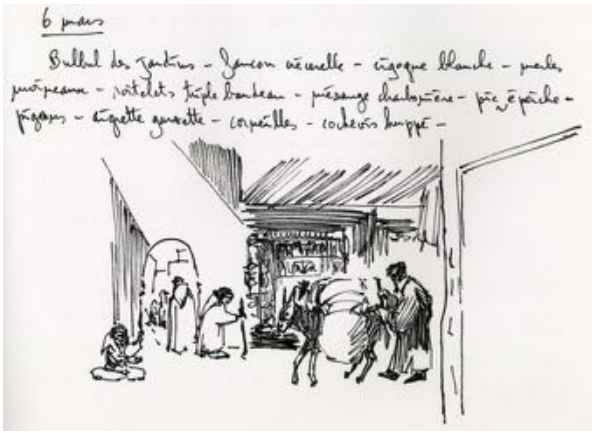 6 mars
Bulbul des jardins - Faucon crécerelle - cigogne blanche - merles
moineaux - roitelets triple bandeau - mésange charbonnière - pic épeiche -
pigeons - aigrette garzette - corneilles - cochevis huppé -